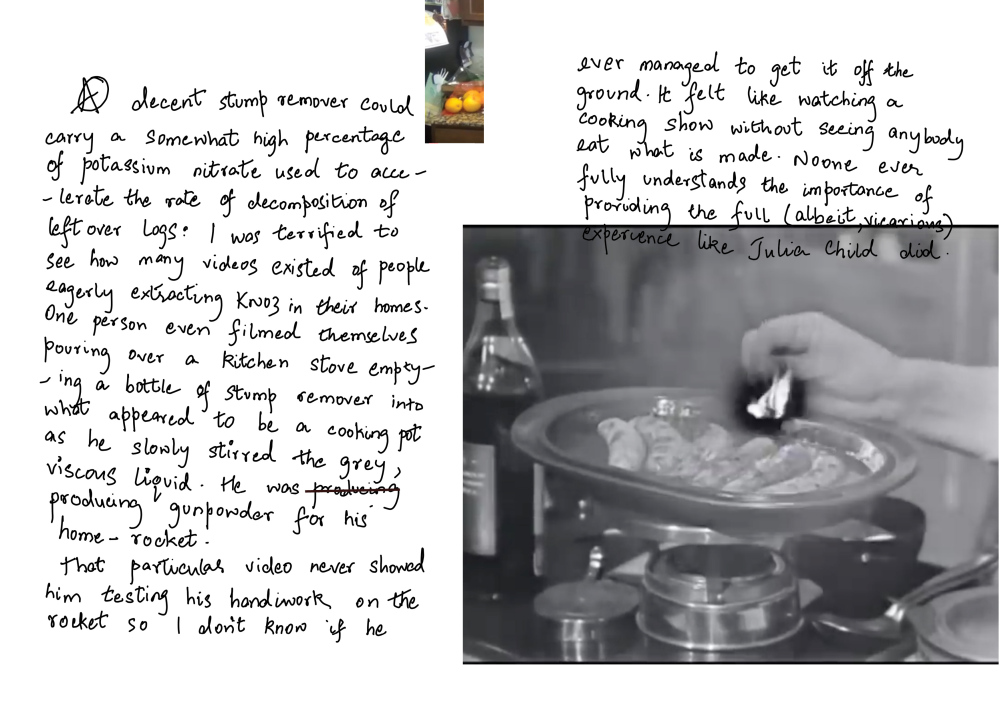 A decent stump remover could
carry a somewhat high percentage
of potassium nitrate used to acce-
-lerate the rate of decomposition of
left over logs. I was terrified to
see how many videos existed of people
eagerly extracting KNO3 in their homes.
One person even filmed themselves
pouring over a kitchen stove empty-
-ing a bottle of stump remover into
what appeared to be a cooking pot
as he slowly stirred the grey,
viscous liquid. He was producing
producing gunpowder for his
home-rocket.
That particular video never showed
him testing his handiwork on the
rocket so I don't know if he
ever managed to get it off the
ground. It felt like watching a
cooking show without seeing anybody
eat what is made. Noone ever
fully understands the importance of
providing the full (albeit, vicarious)
experience like Julia Child did.